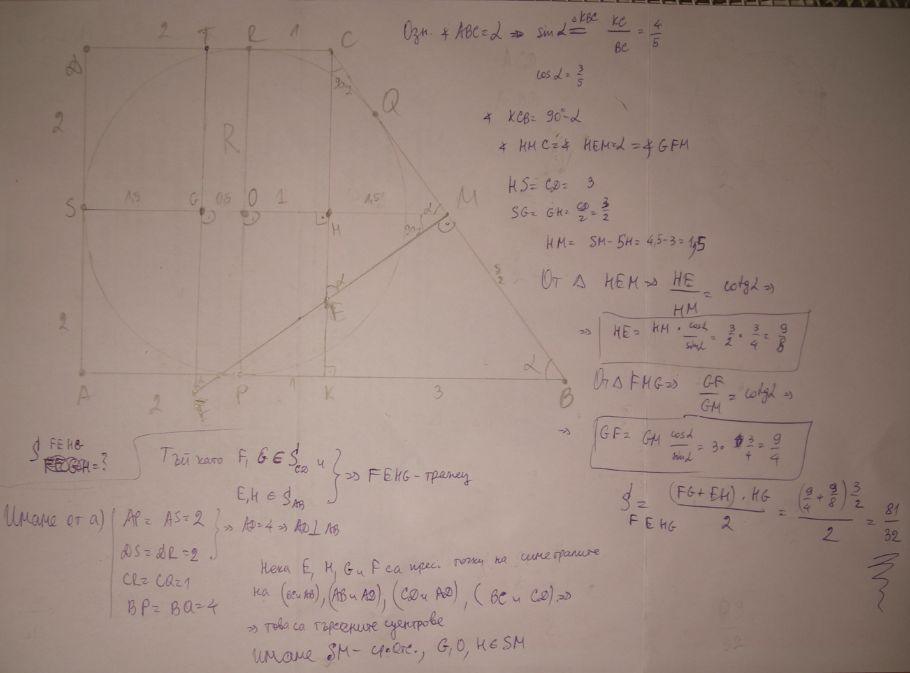 2 T R 1 C
D
Q
90-α
2
R
S 1,5 G 0,5 O 1 H 1,5 α M
90-α
α
E
5/2
2
α
A 2 P 1 K 3 B
Озн. ∢ ABC = α ⇒ sin α = △KBC KC/BC = 4/5
cos α = 3/5
∢ KCB = 90° - α
∢ HMC = ∢ HEM = α = ∢ GFM
HS = CD = 3
SG = GH = CD/2 = 3/2
HM = SM - SH = 4,5 - 3 = 1,5
От △ HEM ⇒ HE/HM = cotg α ⇒
⇒ HE = HM · cos α/sin α = 3/2 · 3/4 = 9/8
От △ FMG ⇒ GF/GM = cotg α ⇒
⇒ GF = GM cos α/sin α = 3 · 3/4 = 9/4
S FEHG = (FG + EH) · HG / 2 = (9/4 + 9/8) 3/2 / 2 = 81/32
S FEHG = ?
Тъй като F, G ∈ S CD и
E, H ∈ S AB
} ⇒ FEHG - трапец
Имаме от а)
AP = AS = 2
DS = DR = 2
} ⇒ AD = 4 ⇒ AD ⊥ AB
CR = CQ = 1
BP = BQ = 4
Нека E, H, G и F са прес. точки на симетралите
на (BC и AB), (AB и AD), (CD и AD), (BC и CD) ⇒
⇒ това са търсените центрове
Имаме SM - ср. отс., G, O, H ∈ SM